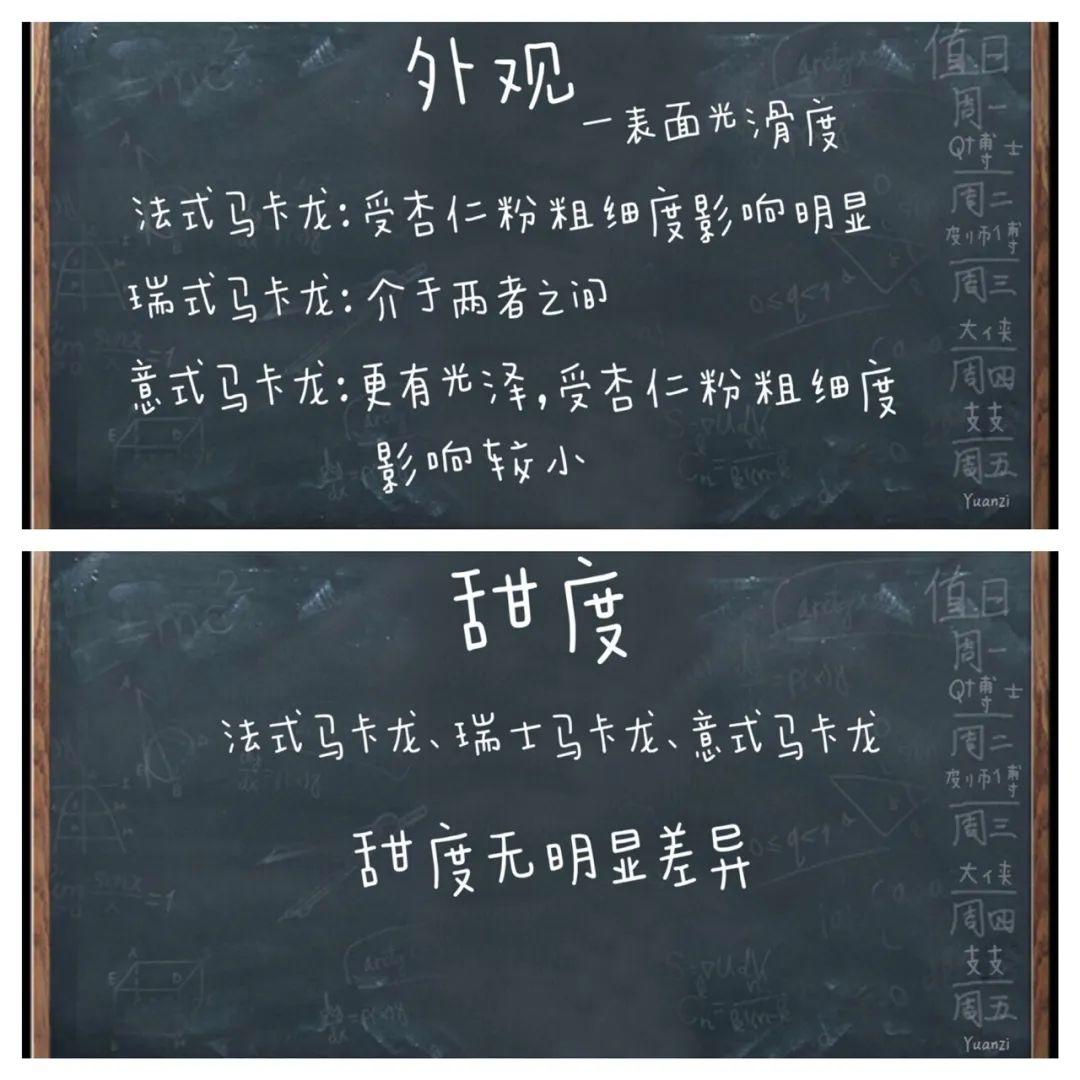 外观
一表面光滑度
法式马卡龙:受杏仁粉粗细度影响明显
瑞式马卡龙:介于两者之间
意式马卡龙:更有光泽,受杏仁粉粗细度
影响较小
值日
周一
QT博士
周二
周三
大侠
周四
周五
Yuanzi
甜度
法式马卡龙、瑞士马卡龙、意式马卡龙
甜度无明显差异
值日
周一
周二
周三
大侠
周四
周五
Yuanzi